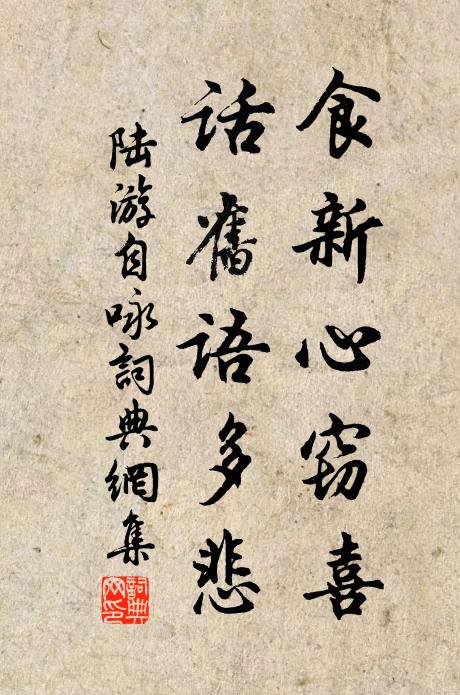 食新心窃喜
话舊语多悲
陆游自咏詞典網集
詞典網印